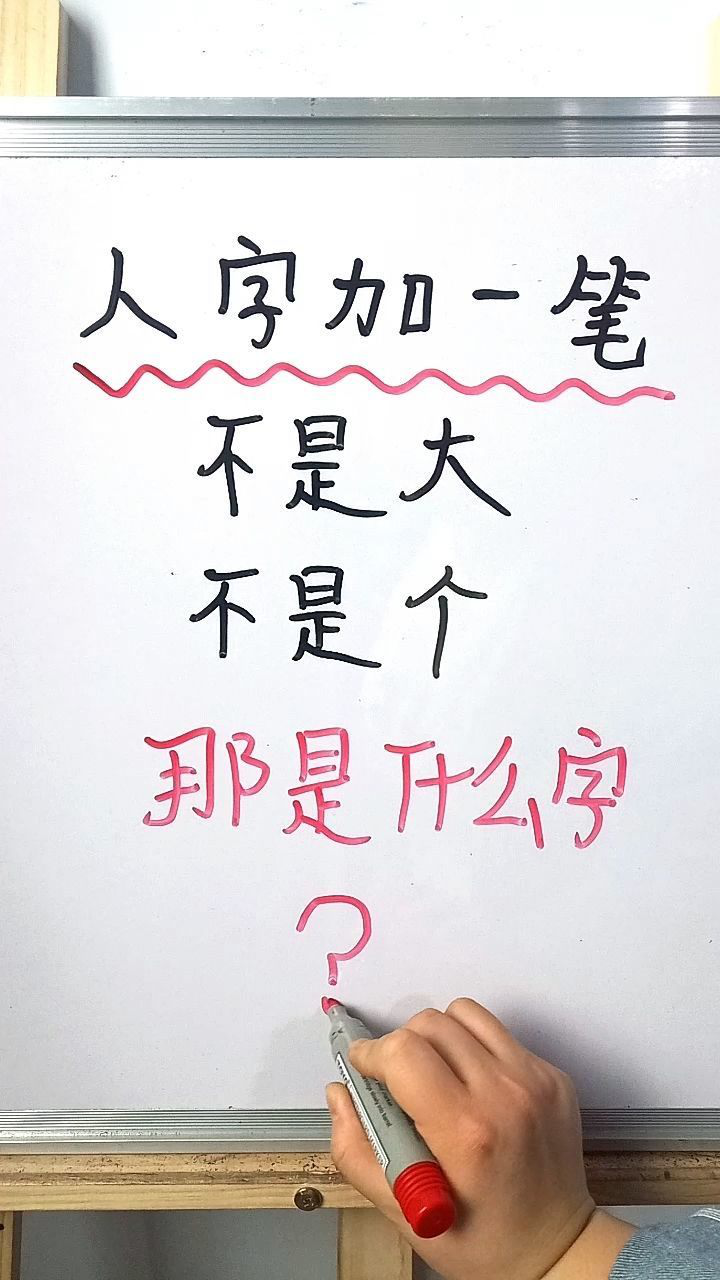 人字加一笔
不是大
不是个
那是什么字
?